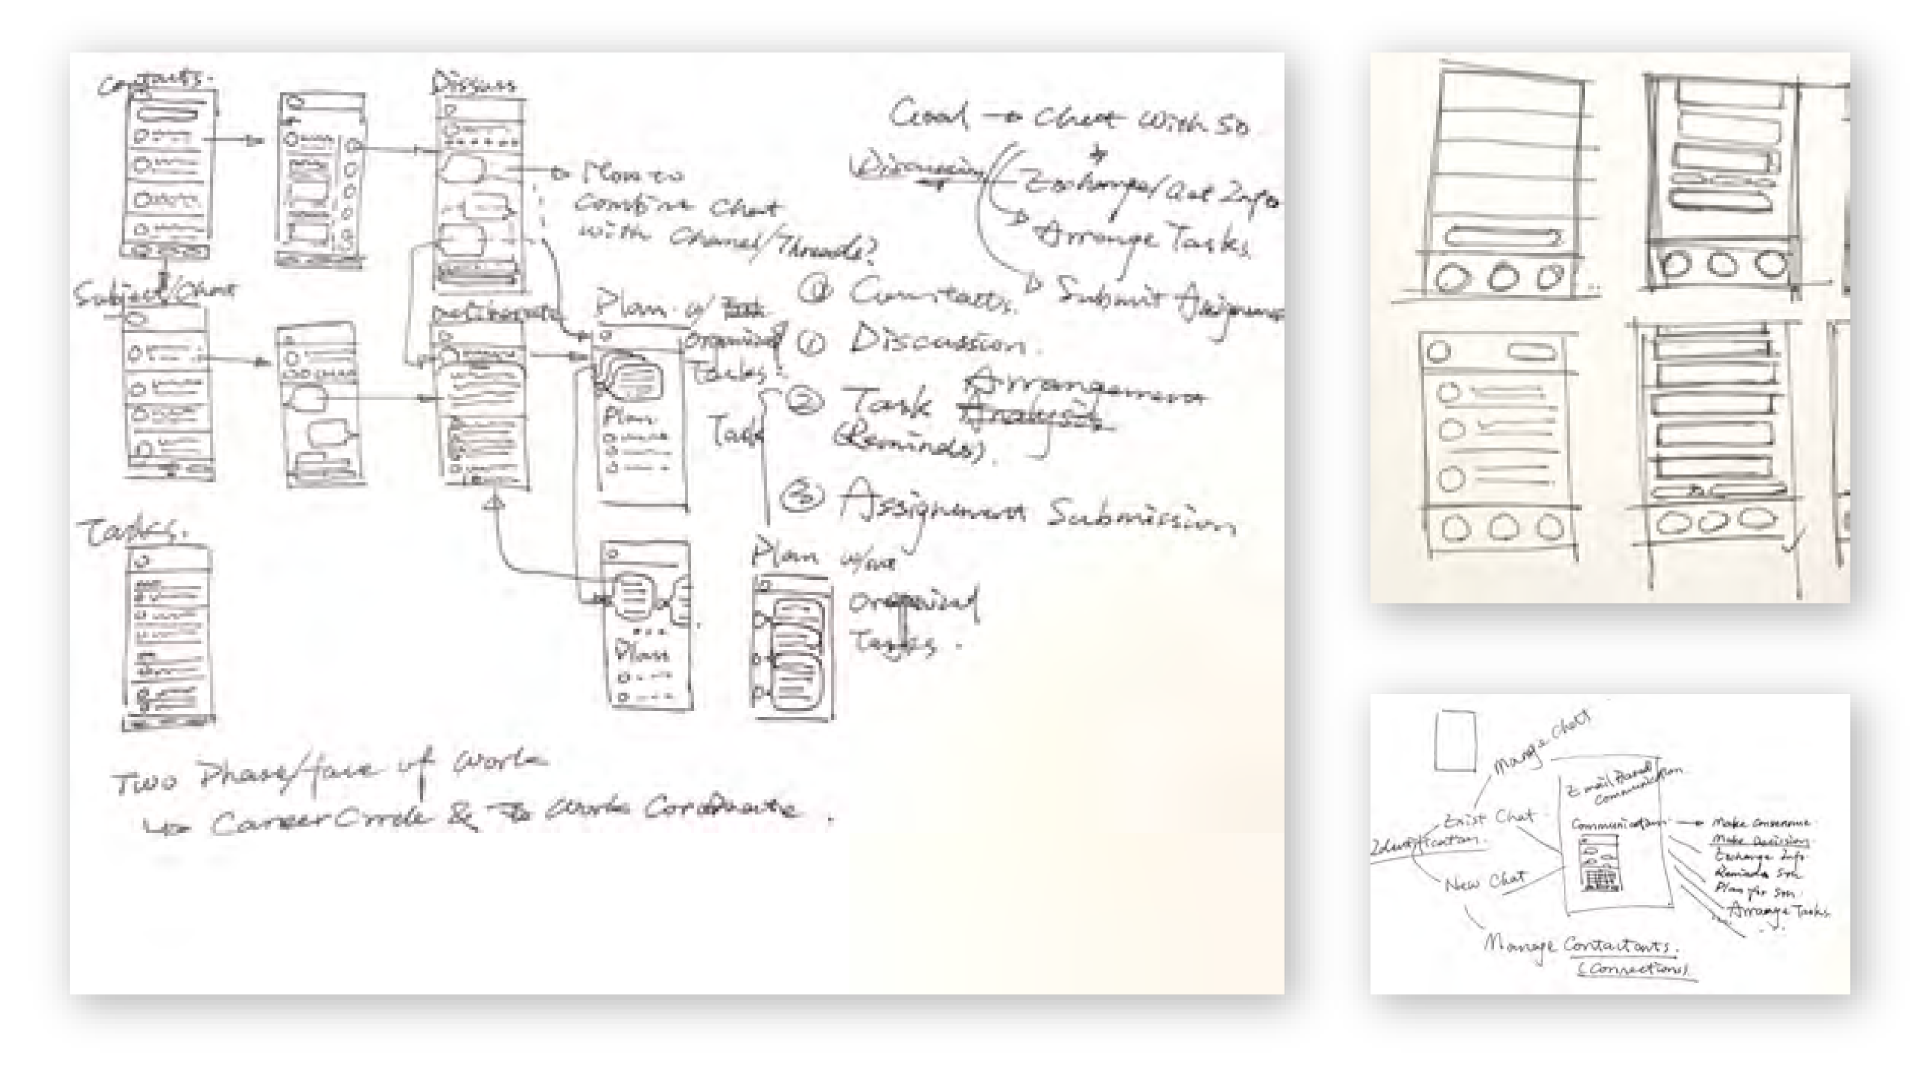 Contacts.
Discuss
How to
Combine Chat
with Channel/Threads?
Goal → Chat with So
Discussion
Exchange/Get Info
Arrange Tasks.
Submit Assignment
Subject/Chat
Deliberate
Plan w/ Task
organized
Tasks.
Plan
Task
⓪
① Discussion.
② Task Analysis
Arrangement
(Reminds).
③ Assignment Submission
Tasks.
Plan
Plan w/out
organized
Tasks.
Two Phase/face of Work
↳ & Works
Manage Chat
Email Based
Communication
Exist Chat
Identification.
New Chat
Communication → Make Consensus
Make Decision
Exchange Info
Reminds Sm
Plan for Sm.
Arrange Tasks.
Manage Contactants.
(Connections)